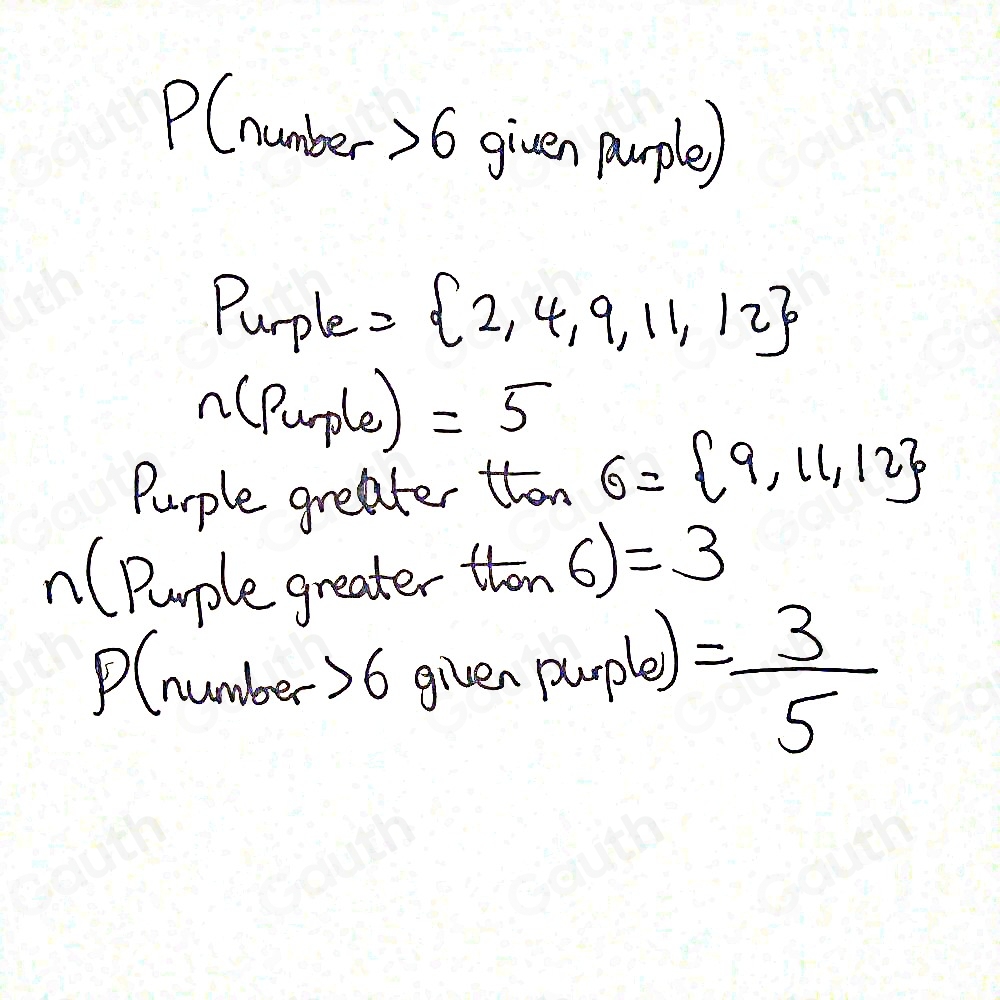 P(number >6 given purple)
Purple = {2, 4, 9, 11, 12}
n(Purple) = 5
Purple greater than 6 = {9, 11, 12}
n(Purple greater than 6) = 3
P(number >6 given purple) = 3/5
Gauth